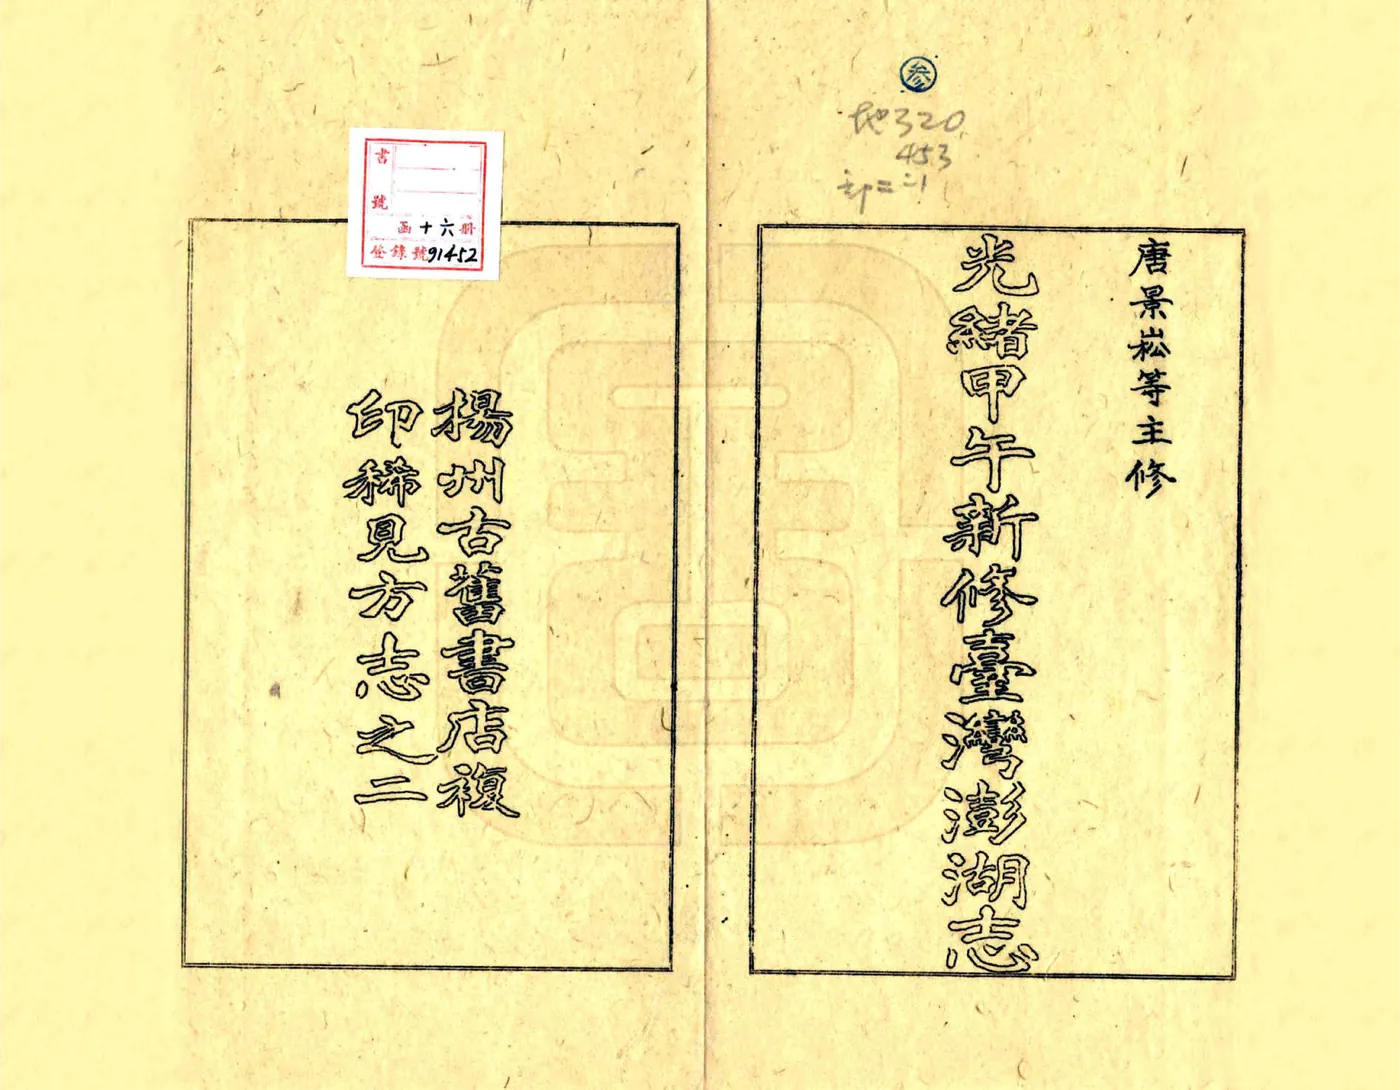 参
地320
453
唐景崧等主修
光緒甲午新修臺灣澎湖志
揚州古舊書店複
印稀見方志之二
書號
函十六冊
登錄號91452